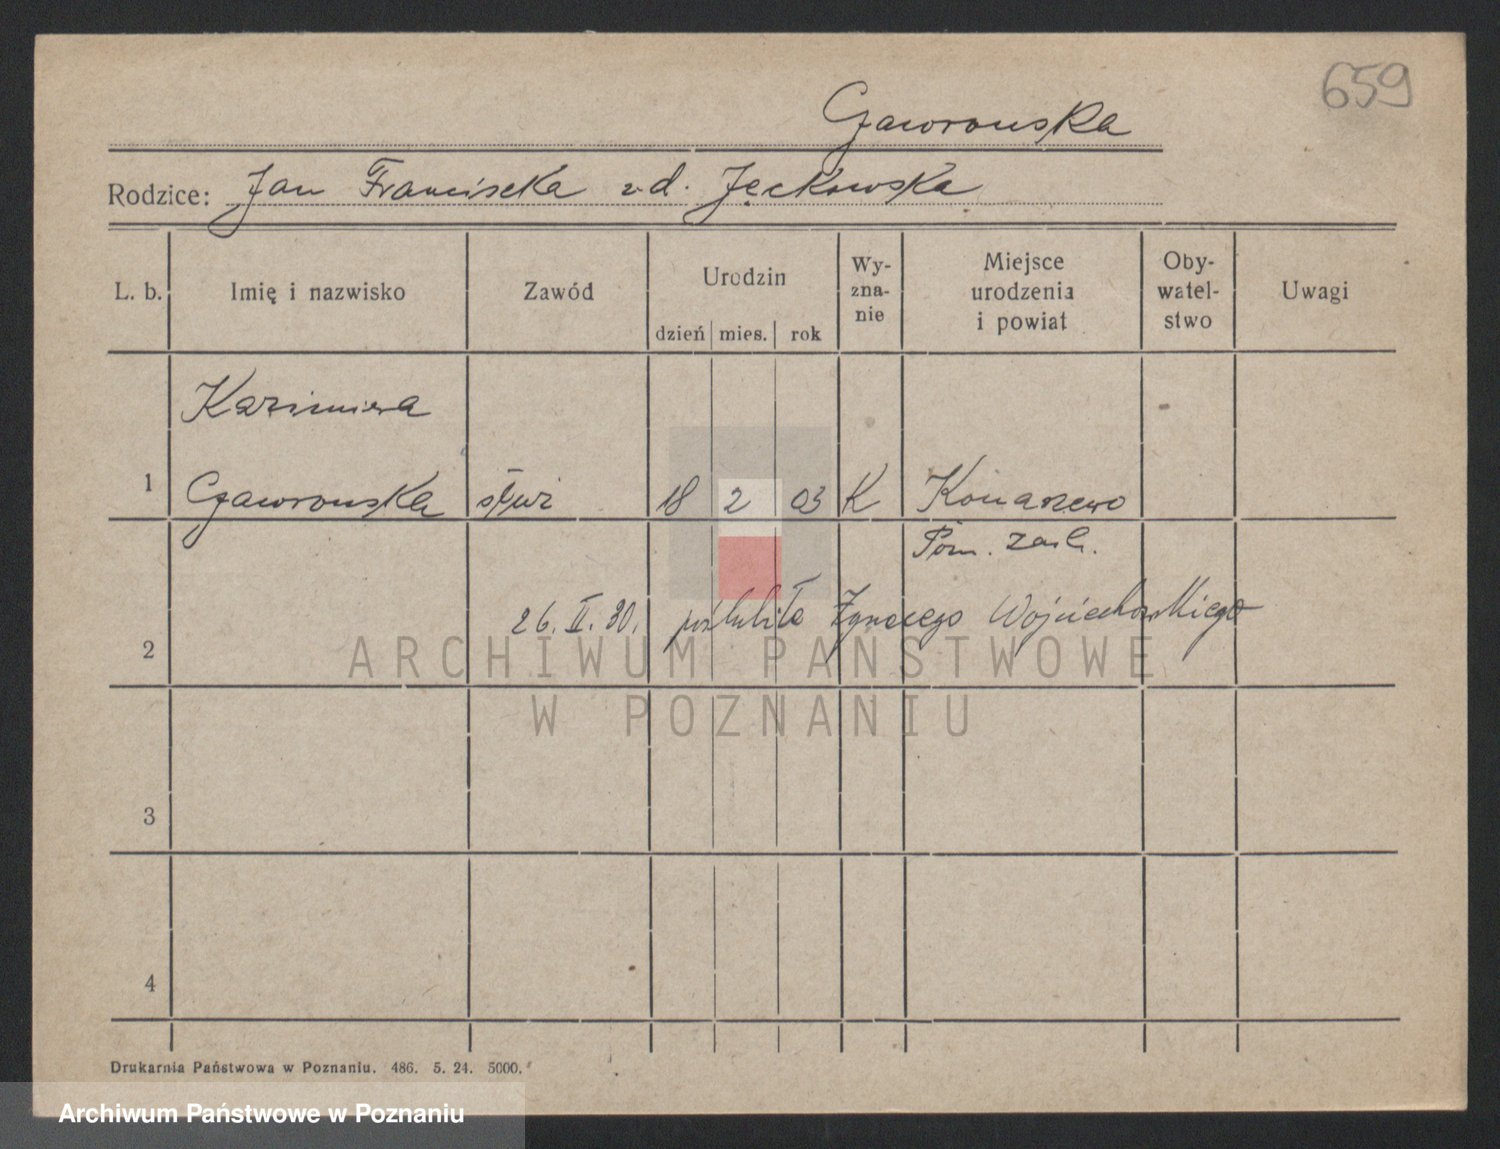 659
Gaworowska
Rodzice: Jan Franciszka z d. Jęckowska
L. b. Imię i nazwisko Zawód Urodzin dzień mies. rok Wy-zna-nie Miejsce urodzenia i powiat Oby-watel-stwo Uwagi
Kazimiera
1 Gaworowska służ 18 2 03 K Konarzewo
Pozn. zach.
26. II. 30. poślubiła Ignacego Wojciechowskiego
2
ARCHIWUM PAŃSTWOWE
W POZNANIU
3
4
Drukarnia Państwowa w Poznaniu. 486. 5. 24. 5000.
Archiwum Państwowe w Poznaniu